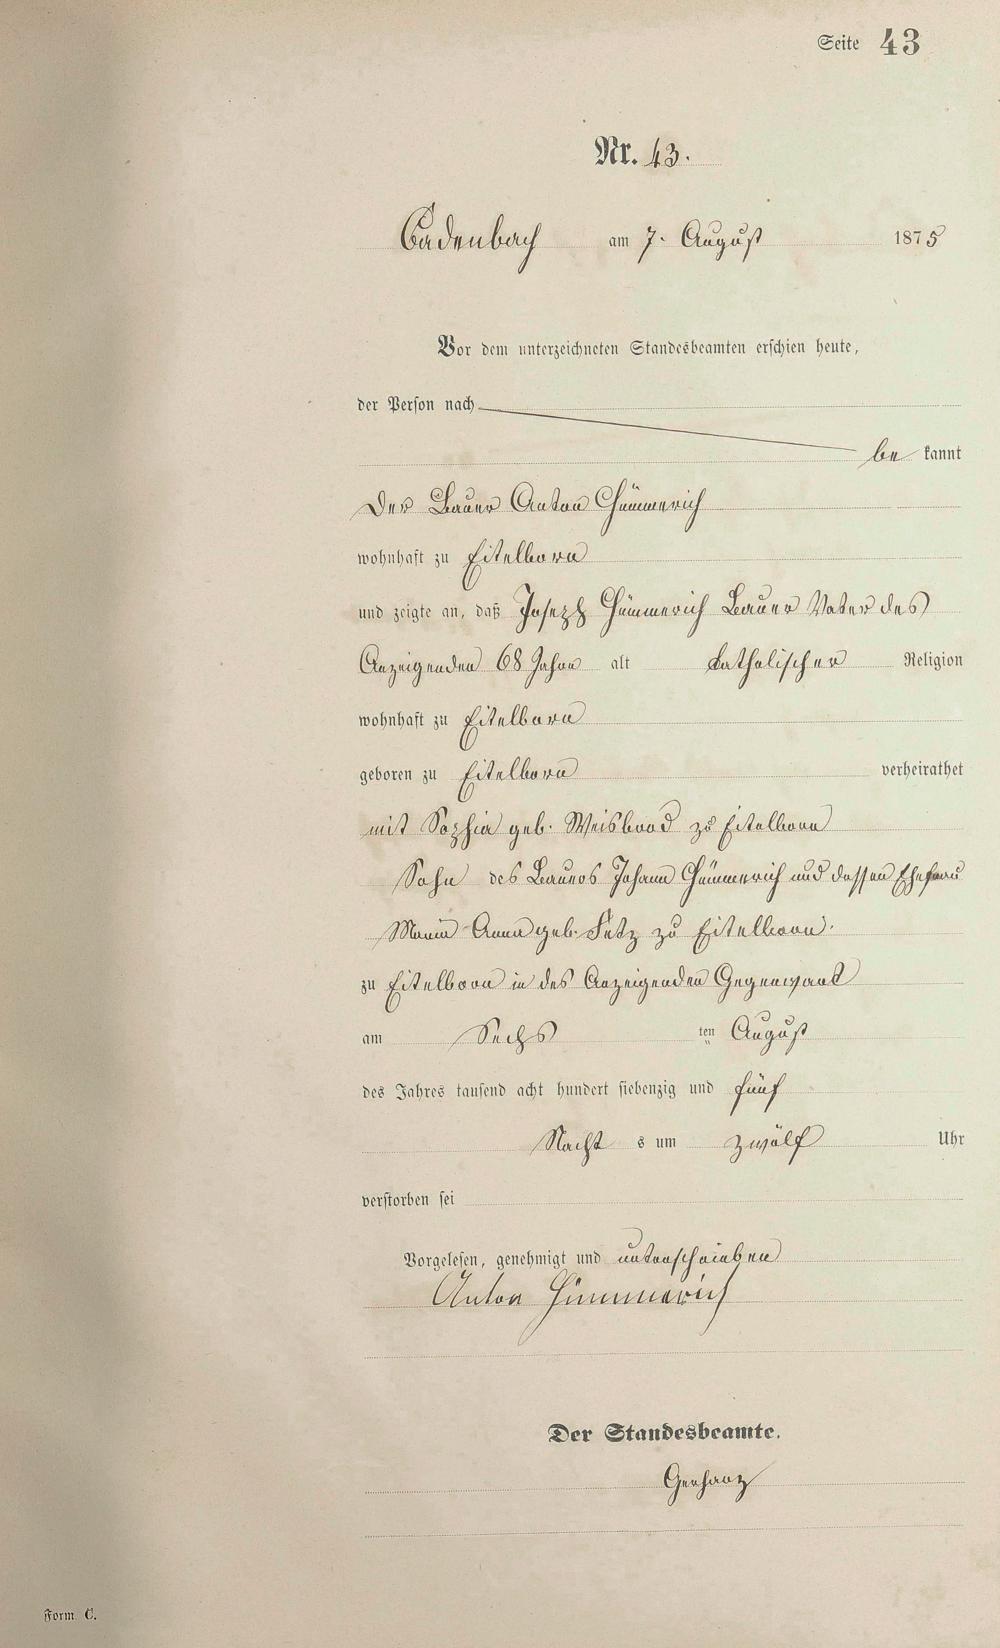 Seite 43
Nr. 43.
Cadenbach am 7. August 1875
Vor dem unterzeichneten Standesbeamten erschien heute,
der Person nach
be kannt
Der Bauer Anton Hümmerich
wohnhaft zu Eitelborn
und zeigte an, daß Joseph Hümmerich Bauer Vater des
Anzeigenden 68 Jahre alt katholischer Religion
wohnhaft zu Eitelborn
geboren zu Eitelborn verheirathet
mit Sophia geb. Weisbrod zu Eitelborn
Sohn des Bauers Johann Hümmerich und dessen Ehefrau
Maria Anna geb. Fetz zu Eitelborn.
zu Eitelborn in des Anzeigenden Gegenwart
am Sechs ten August
des Jahres tausend acht hundert siebenzig und fünf
Nacht s um zwölf Uhr
verstorben sei
Vorgelesen, genehmigt und unterschrieben
Anton Hümmerich
Der Standesbeamte.
Gerharz
Form C.